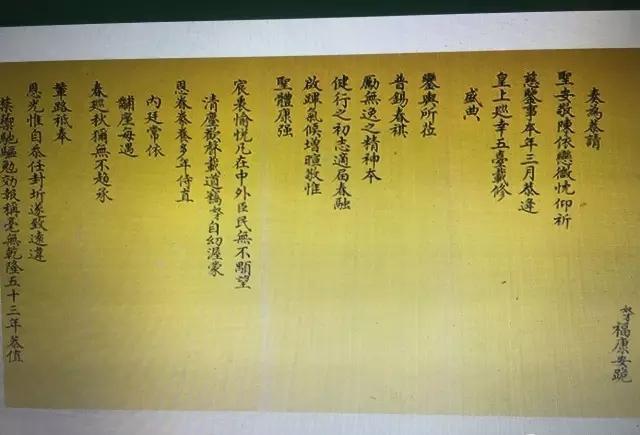 奴才福康安跪
奏為恭請
聖安敬陳依戀微忱仰祈
慈鑒事本年三月恭逢
皇上巡幸五臺載修
盛典
鑾輿所蒞
普錫春祺
勵無逸之精神本
健行之初志適屆春融
啟蹕氣候增暄敬惟
聖體康强
宸衷愉悅凡在中外臣民無不顒望
清塵歡聲載道竊奴才自幼渥蒙
恩眷豢養多年侍直
內廷常依
黼座每遇
春巡秋獮無不趨承
輦路祗奉
恩光惟自忝任封圻遂致遠違
禁籞馳驅勉効報稱毫無乾隆五十三年恭值